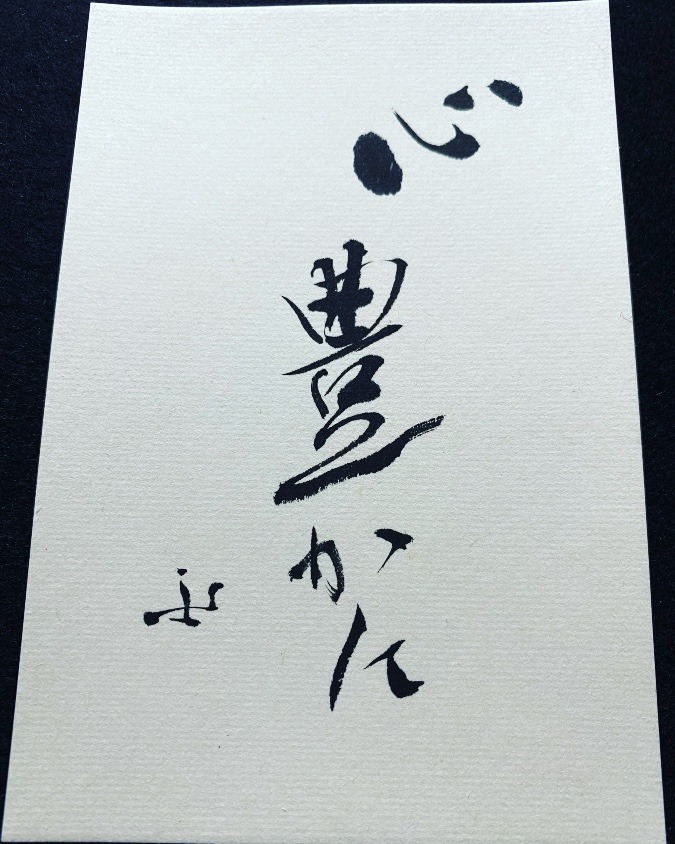 心豊かに